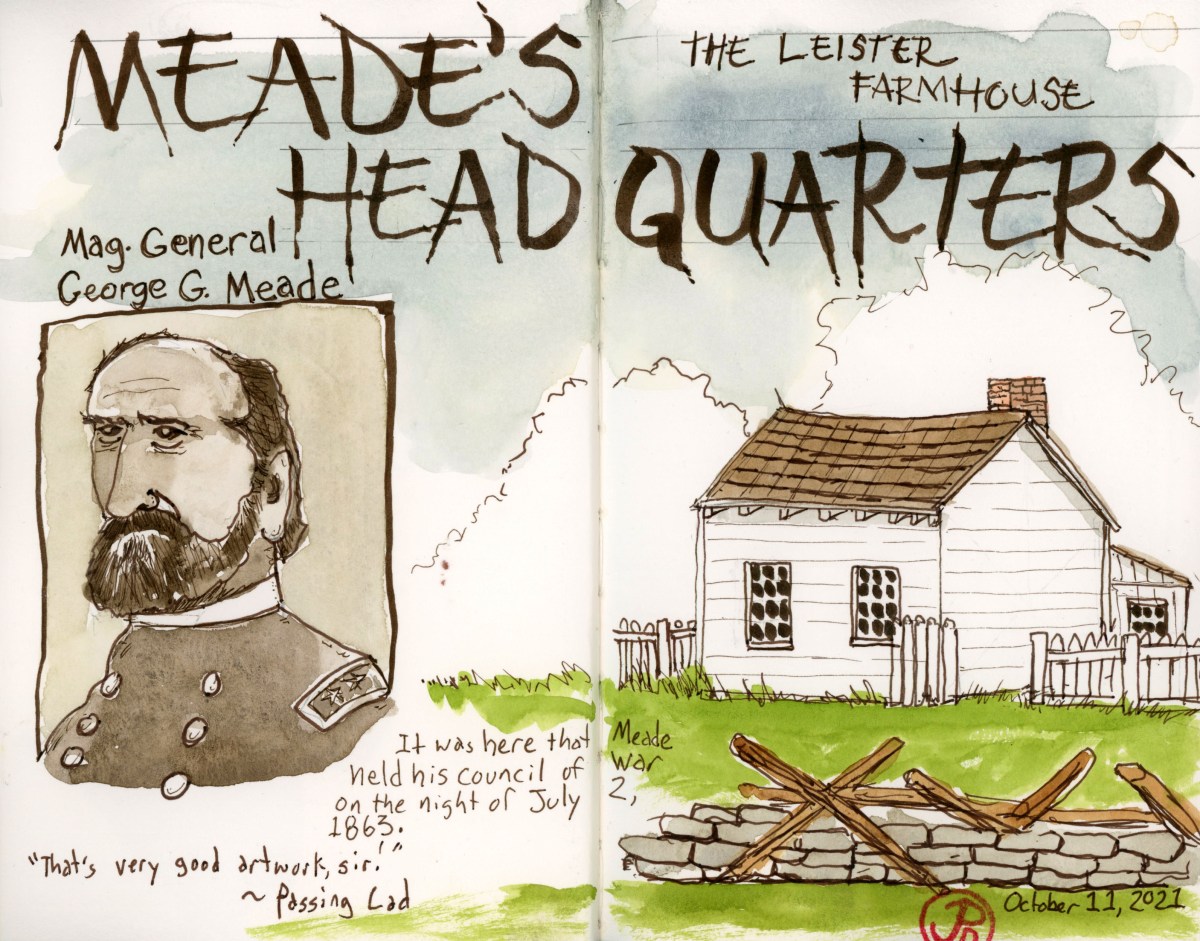 MEADE'S
HEADQUARTERS
THE LEISTER
FARMHOUSE
Mag. General
George G. Meade
It was here that Meade
held his council of war
on the night of July 2,
1863.
"That's very good artwork, sir!"
~ Passing Lad
October 11, 2021
JPD